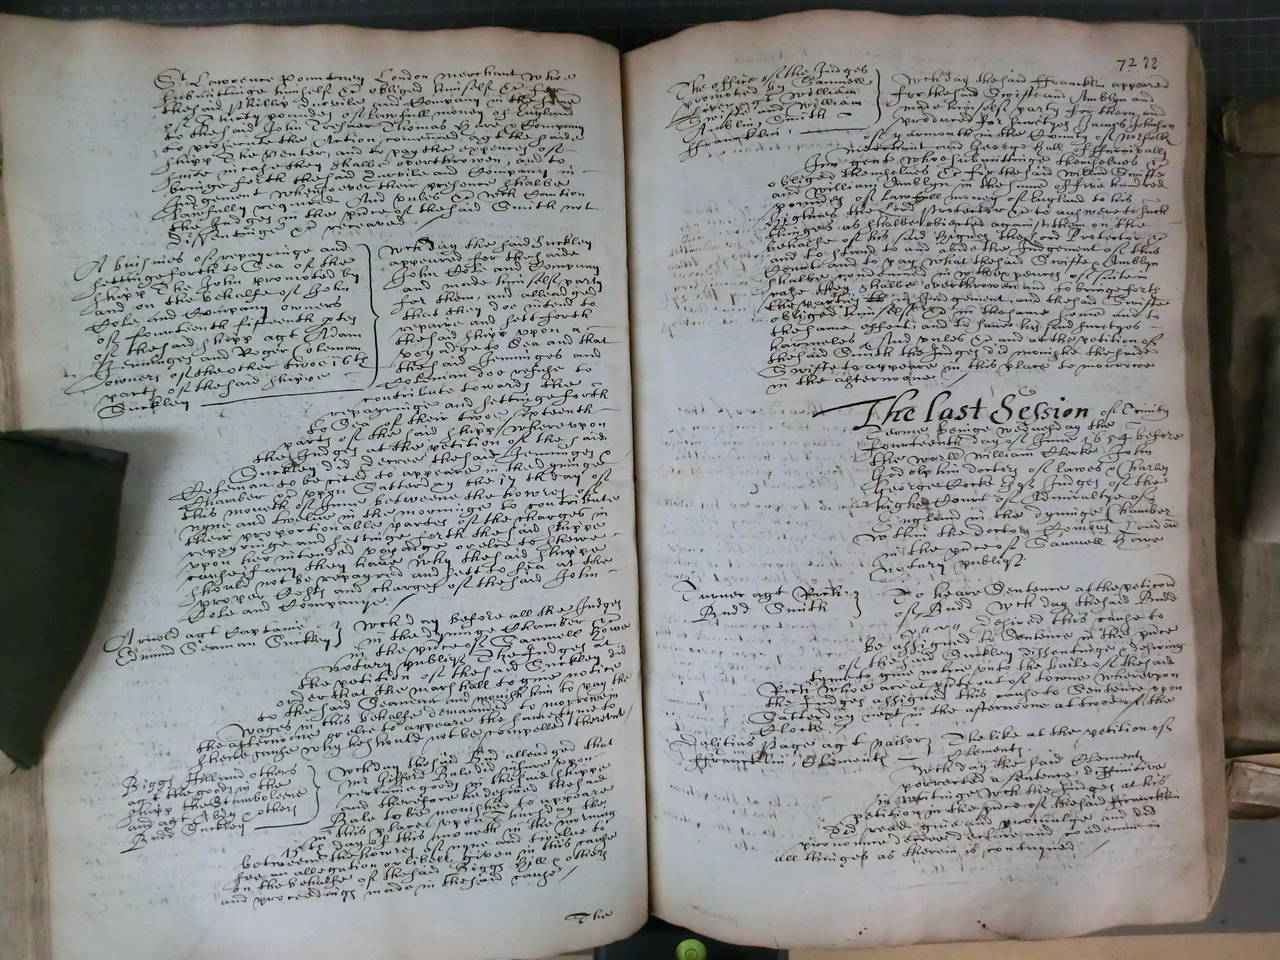 St Lawrence Pountney London Merchant whoe
submittinge himselfe &c obliged himselfe &c for
the said Phillip and Company in the summe
of Thirty poundes of lawfull money of England
to the said John Thomas and Company
to prosecute the Action commenced agt the said
shipp and to pay the expences of
suite in case they shalbe overthrowen, and to
bringe forth the said and Company in
Judgement whensoever their presence shalbe
lawfully required And unles &c wch Caution
the Judges in the pnce of the said Smith not
dissentinge &c received
A busines of repayringe and
settinge forth to Sea of the
shipp The John promoted by
and on the behalfe of John
Cole and Company owners
of fourteenth sixteenth ptes
of the said shipp agt Adam
Jenninges and Roger Coleman
owners of the other twoe 16th
parts of the said shippe
Suckley
wch day the said Suckley
appeared for the said
John Cole and Company
and made himselfe party
for them, and alleadged
that they doe intend to
repaire and sett forth
the said shipp upon a
voyadge to Sea and that
the said Jenninges and
Coleman doe refuse to
contribute towards the
repayringe and settinge forth
to Sea of their twoe sixteenth
parts of the said shipp, whereupon
the Judges at the petition of the said
Suckley did decree the said Jenninges &
Coleman to be cited to appeare in the dyninge
Chamber &c upon Satterday the 17th day of
this moneth of June betweene the howres of
nyne and twelve in the morninge to contribute
their proportionable partes of the charges in
repayringe and settinge forth the said shippe
upon her intended voyadge or els to shewe
cause if any they have why the said shippe
should not be repayred and sett to Sea at the
proper Costs and charges of the said John
Cole and Companye
Arnold agt Captaine
Edmund Seaman Suckley
wch day before all the Judges
in the dyninge Chamber &c
in the pnce of Samuell Howe
notary publique The Judges at
the petition of the said Suckley did
order that the marshall to give notice
to the said Seaman and monish him to pay the
wages in this behalfe demanded to morrowe in
the afternoone or els to appeare the same time to
shewe cause why he should not be compelled thereunto
Biggs Hill and others
agt the goods in the
shipp the
and agt Alden & others
Budd Suckley
wch day the said Budd alleadged that
mr Bale did insure upon
certaine goods in the said shippe
and therefore he desired the said
Bale to be monished to appeare
in this place upon Thursday the
15th day of this moneth in the morning
betweene the howres of nyne and twelve to
see an allegation or libell given in this cause
on the behalfe of the said Biggs Hill & others
and proceedings made in the said cause
The
72
The office of the Judges
promoted by Samuell
agt William
Swifte and William
Amblyn Smith
Francklin
wch day the said Francklin appeared
for the said Swifte and Amblyn and
made himselfe party for them and
produced for sureties James Johnson
of Yarmouth in the County of Norfolk
merchant and George Hall of
gent whoe submittinge themselves &c
obliged themselves &c for the said William Swifte
and William Amblyn in the summe of five hundred
poundes of lawfull money of England to his
highnes the Lord Protector &c to answere to such
thinges as shalbe objected against them on the
behalfe of his said highnes the Lord Protector &c
and to stand to and abide the Judgement of this
Court and to pay what the said Swifte & Amblyn
shalbe condemned in with expences of suite in
case they shalbe overthrowen and to bringe forth
the parties in Judgement, and the said Swifte
obliged himselfe &c in the same summe and to
the same effect, and to save his said suretyes
harmeles And unles &c and at the petition of
the said Smith the Judges did monish the said
Swifte to appeare in this place to morrowe
in the afternoone
The last Session of Trinity
Terme beinge Wednesday the
fourteenth day of June 1654 before
the worll William Clerke John
Godolphin doctors of lawes & Charles
George Cocke Esqr Judges of the
high Court of Admiraltye of
England in the dyninge Chamber
within the doctors Comons London
in the pnce of Samuell Howe
notary publique
Turner agt Rich:
Budd Smith
To heare Sentence at the petition
of Budd wch day the said Budd
desired this cause to
be assigned to Sentence in the pnce
of the said Suckley dissentinge & desiring
time to give notice unto the baile of the said
Rich whoe are out of towne whereupon
the Judges assigned this cause to Sentence upon
Satterday next in the afternoone at twoe of the
Clocke
Page agt Pailor
Francklin Clements
The like at the petition of
Clements
wch day the said Clements
porrected a Sentence definitive
in writinge wch the Judges at his
petition in the pnce of the said Francklin
did read give and promulge and did
pronounce decree declare and
all thinges as therein is conteyned